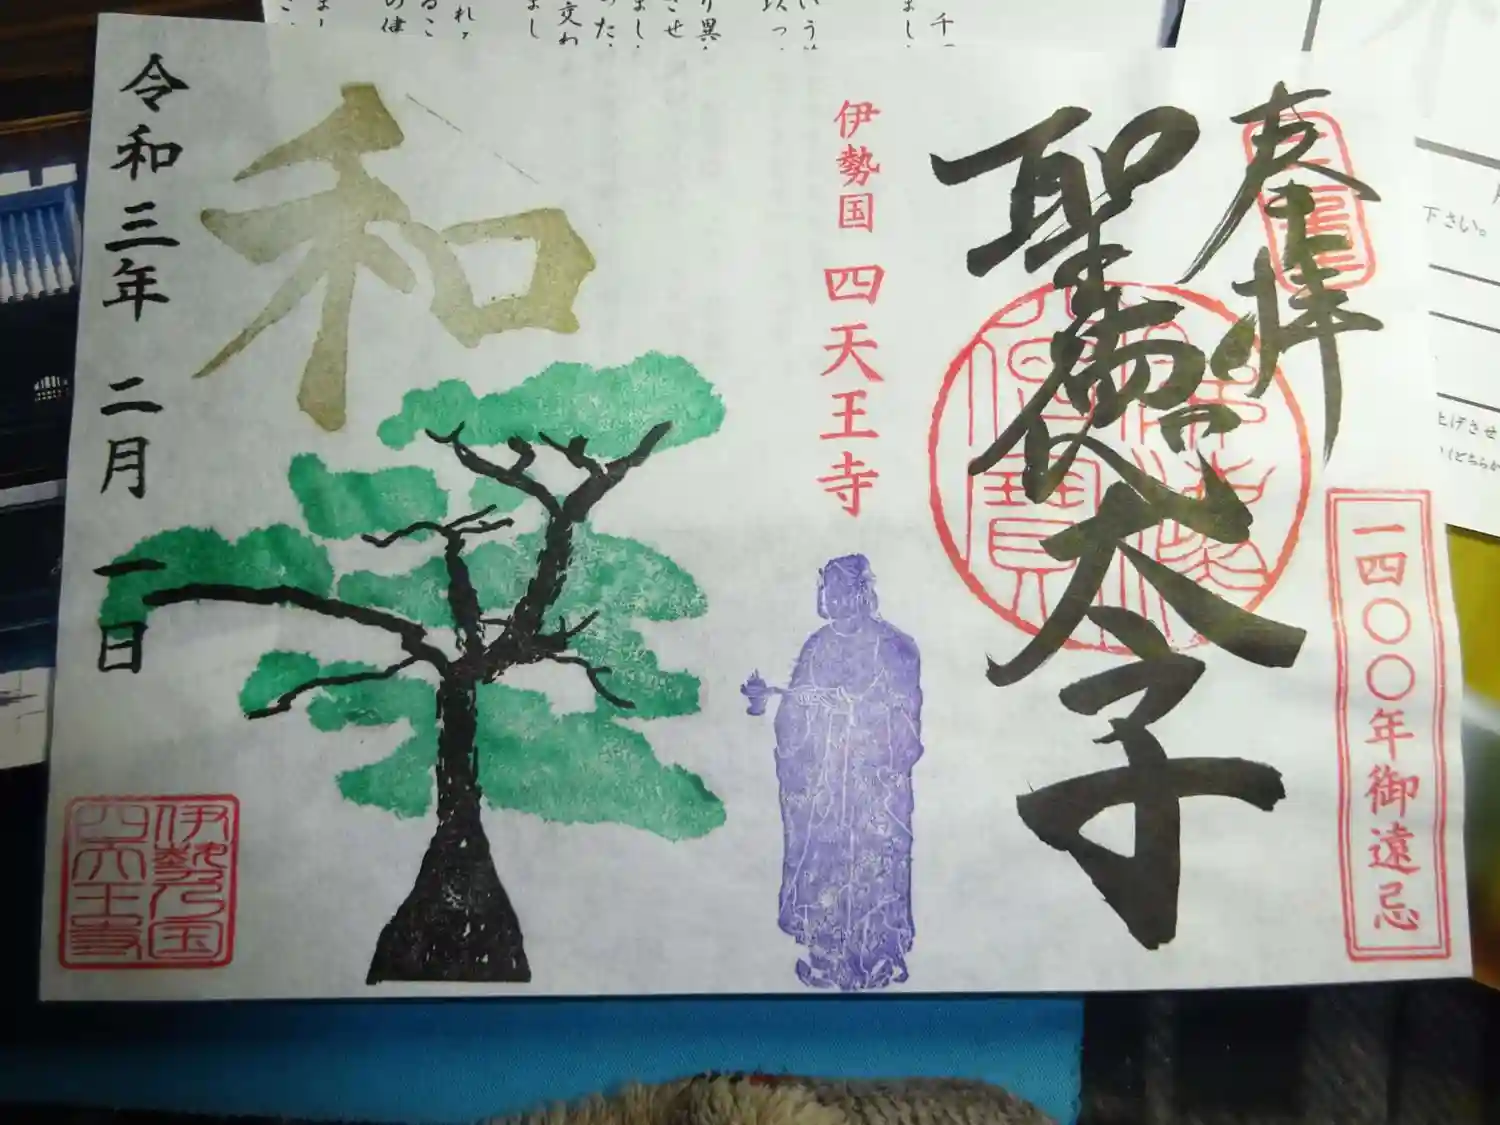 奉拝
聖徳太子
一四〇〇年御遠忌
佛法僧寶
伊勢国 四天王寺
和
令和三年 二月 一日
伊勢乃国
四天王寺
下さい。
上げさせ